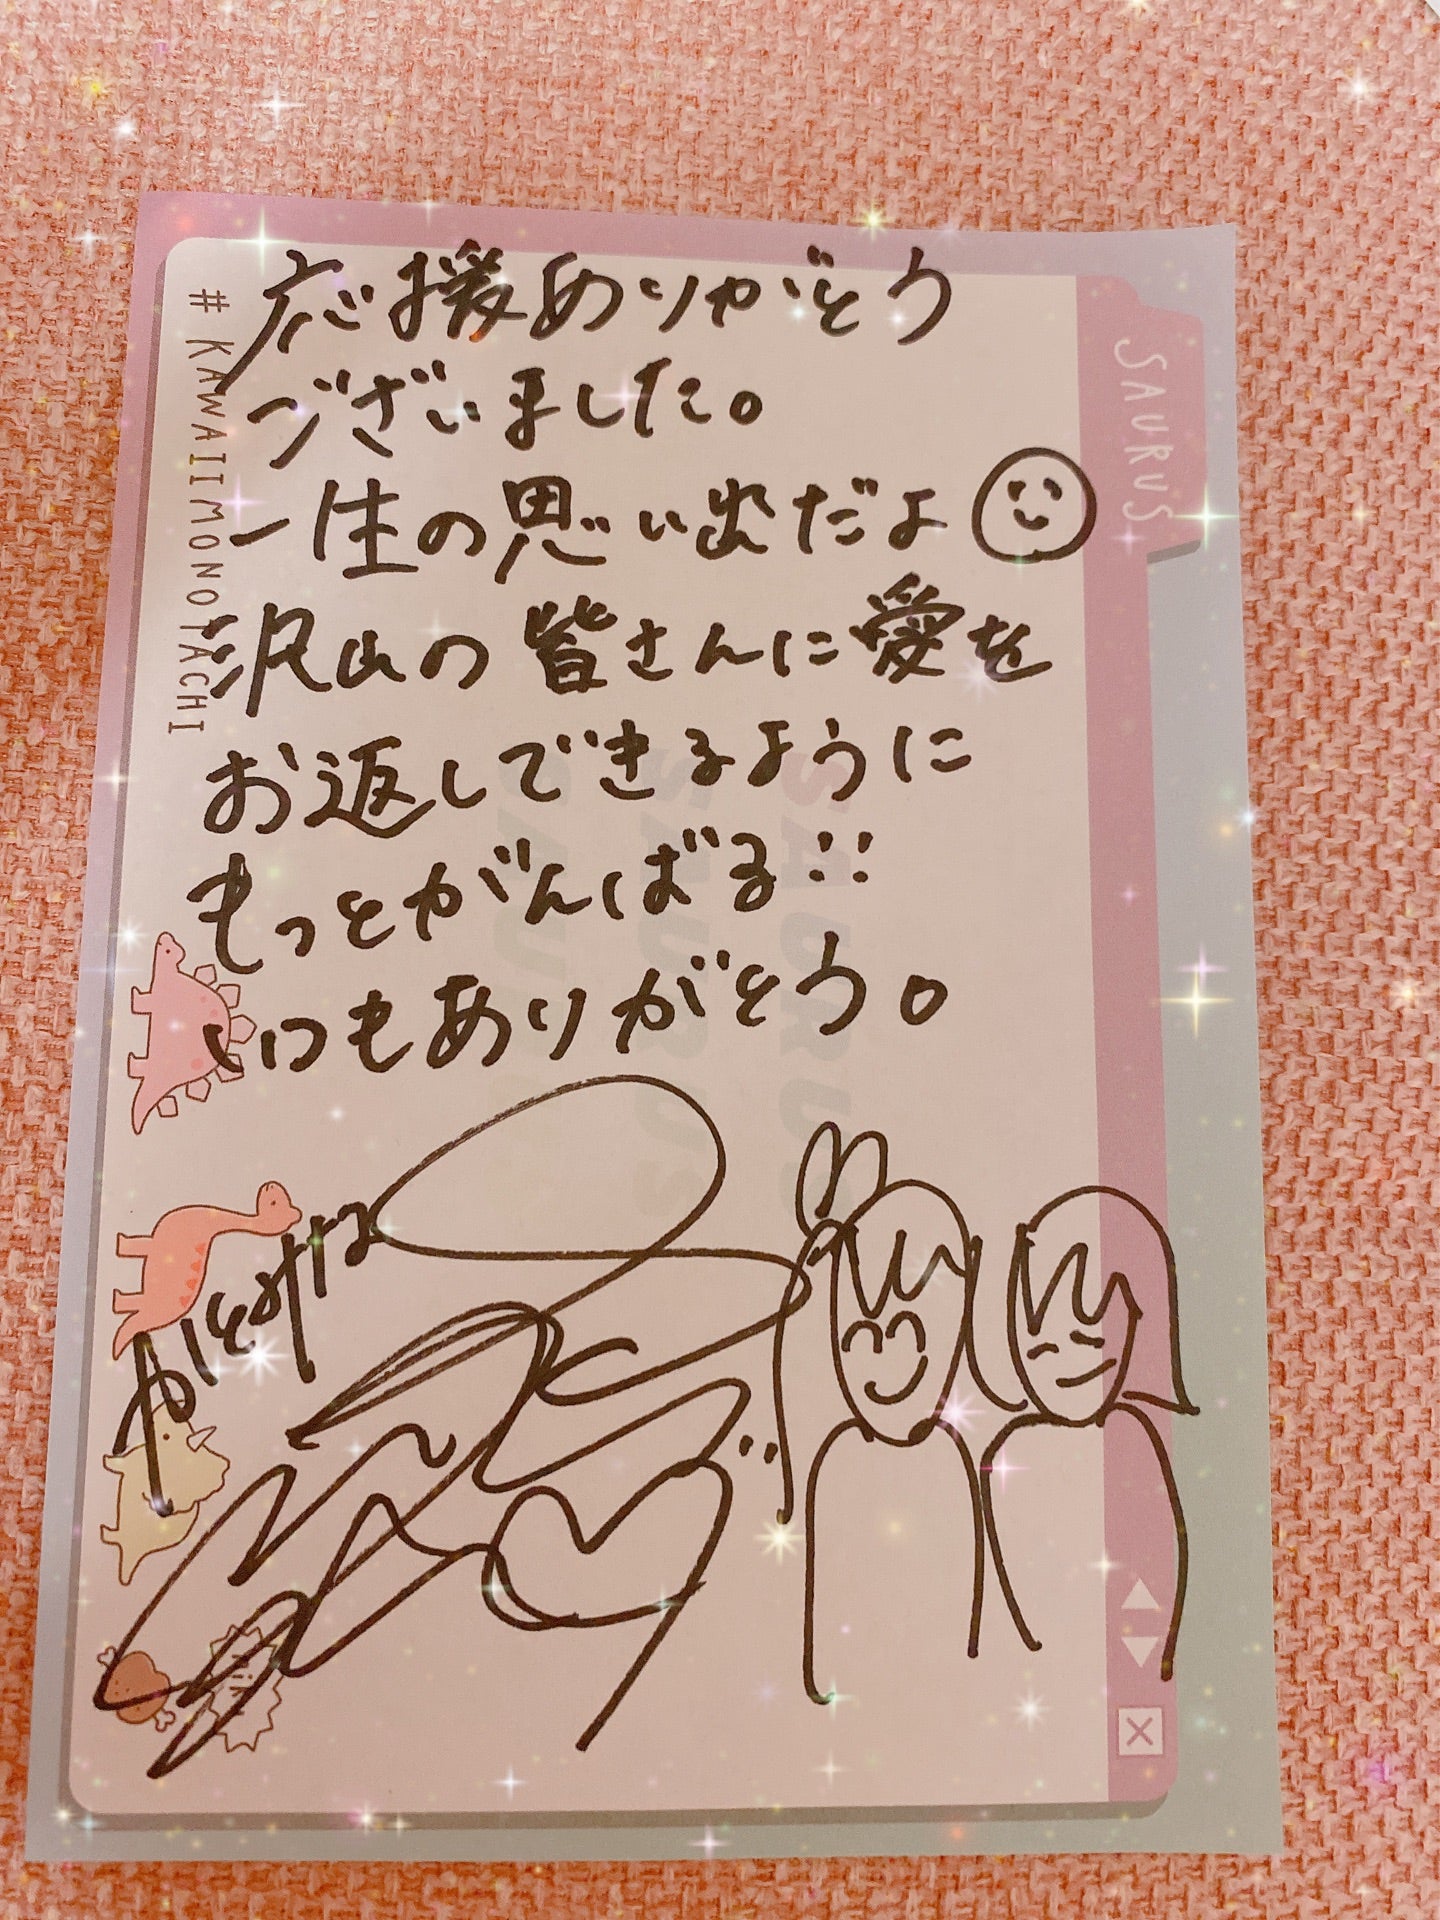 応援ありがとう
ございました。
一生の思い出だよ
沢山の皆さんに愛を
お返しできるように
もっとがんばる!!
いつもありがとう。
# KAWAIIMONOTACHI
SAURUS